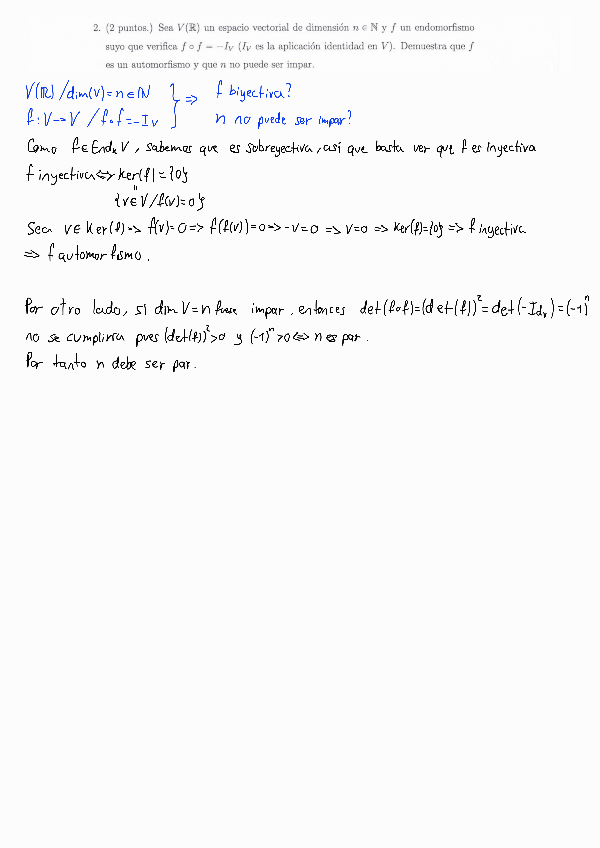 2. (2 puntos.) Sea V(ℝ) un espacio vectorial de dimensión n ∈ ℕ y f un endomorfismo
suyo que verifica f ∘ f = −I_V (I_V es la aplicación identidad en V). Demuestra que f
es un automorfismo y que n no puede ser impar.
V(ℝ) / dim(V) = n ∈ ℕ } ⇒ f biyectiva?
f: V → V / f∘f = −I_V } n no puede ser impar?
Como f ∈ End_k V, sabemos que es sobreyectiva, así que basta ver que f es inyectiva
f inyectiva ⇔ ker(f) = {0}
{v ∈ V / f(v) = 0}
Sea v ∈ Ker(f) ⇒ f(v) = 0 ⇒ f(f(v)) = 0 ⇒ −v = 0 ⇒ v = 0 ⇒ Ker(f) = {0} ⇒ f inyectiva
⇒ f automorfismo.
Por otro lado, si dim V = n fuese impar, entonces det(f∘f) = (det(f))² = det(−Id_V) = (−1)ⁿ
no se cumpliría pues (det(f))² > 0 y (−1)ⁿ > 0 ⇔ n es par.
Por tanto n debe ser par.